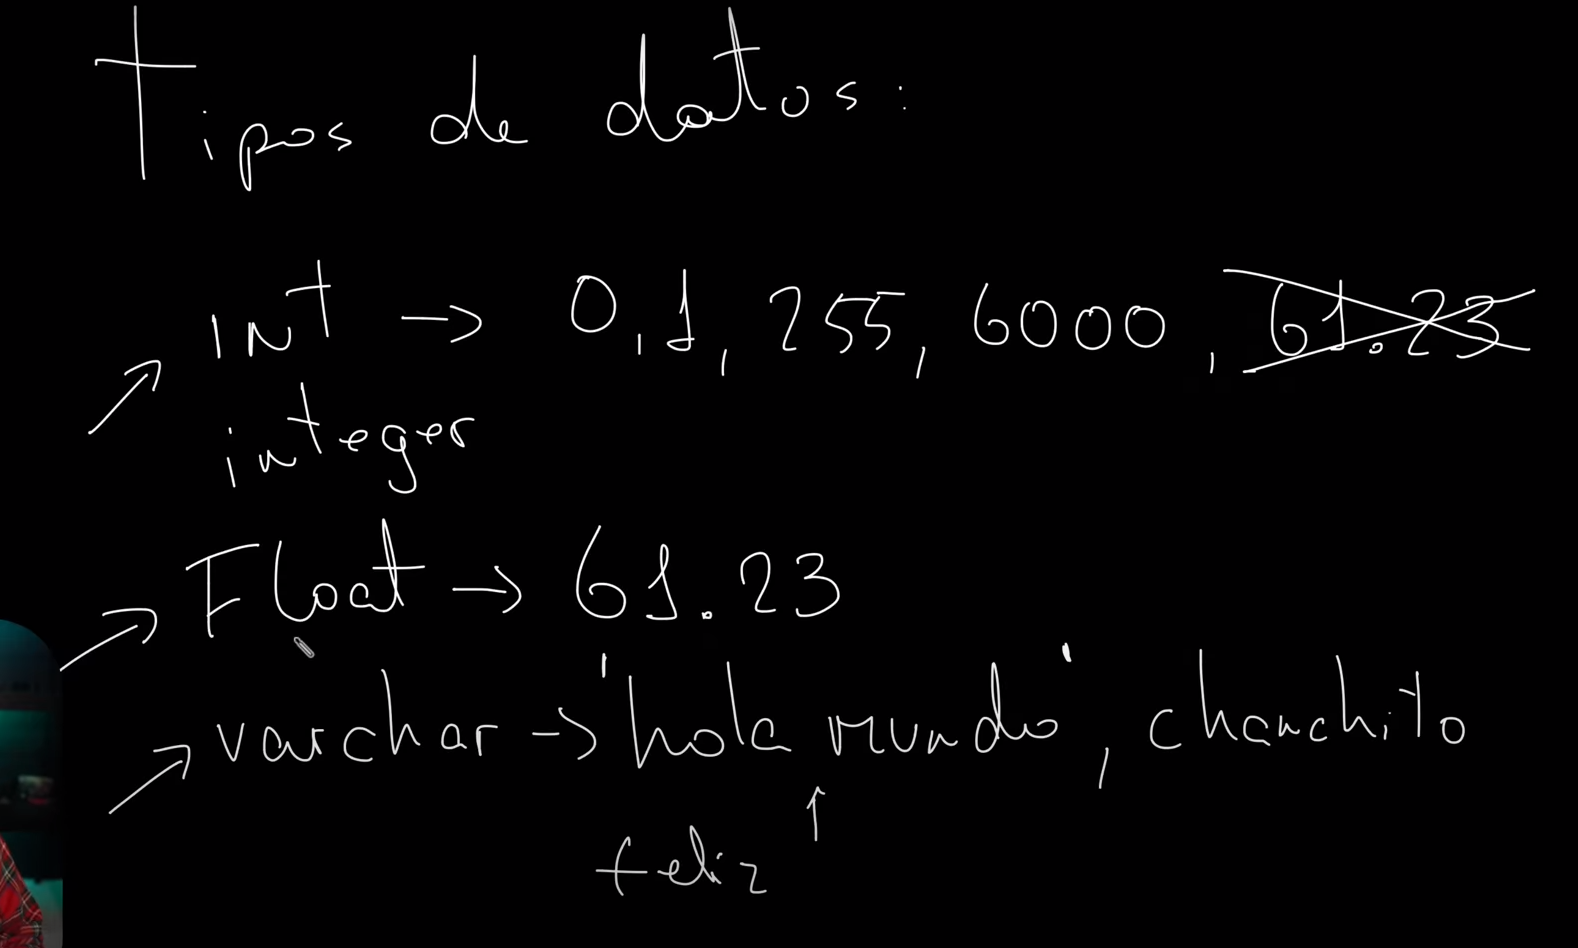 Tipos de datos:
INT → 0, 1, 255, 6000, 61.23
integer
Float → 61.23
varchar → 'hola mundo', chanchito
feliz